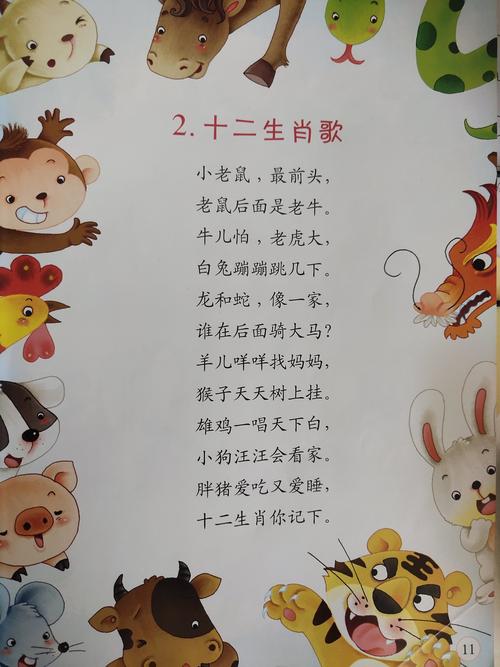 2. 十二生肖歌
小老鼠，最前头，
老鼠后面是老牛。
牛儿怕，老虎大，
白兔蹦蹦跳几下。
龙和蛇，像一家，
谁在后面骑大马？
羊儿咩咩找妈妈，
猴子天天树上挂。
雄鸡一唱天下白，
小狗汪汪会看家。
胖猪爱吃又爱睡，
十二生肖你记下。
11